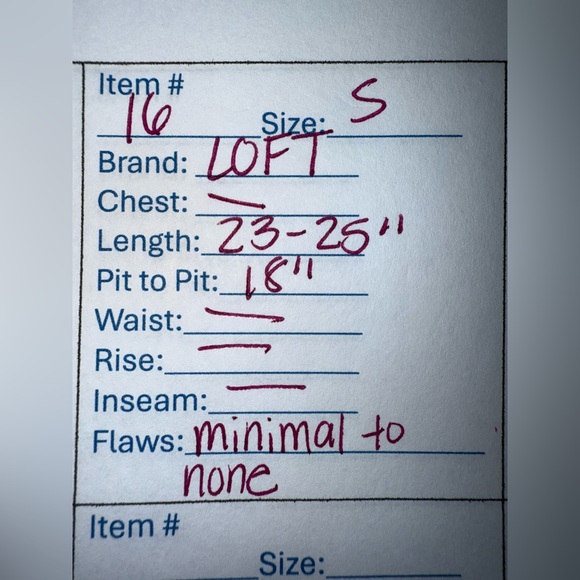 Item #
16 Size: S
Brand: LOFT
Chest: —
Length: 23-25"
Pit to Pit: 18"
Waist: —
Rise: —
Inseam: —
Flaws: minimal to
none
Item #
Size: